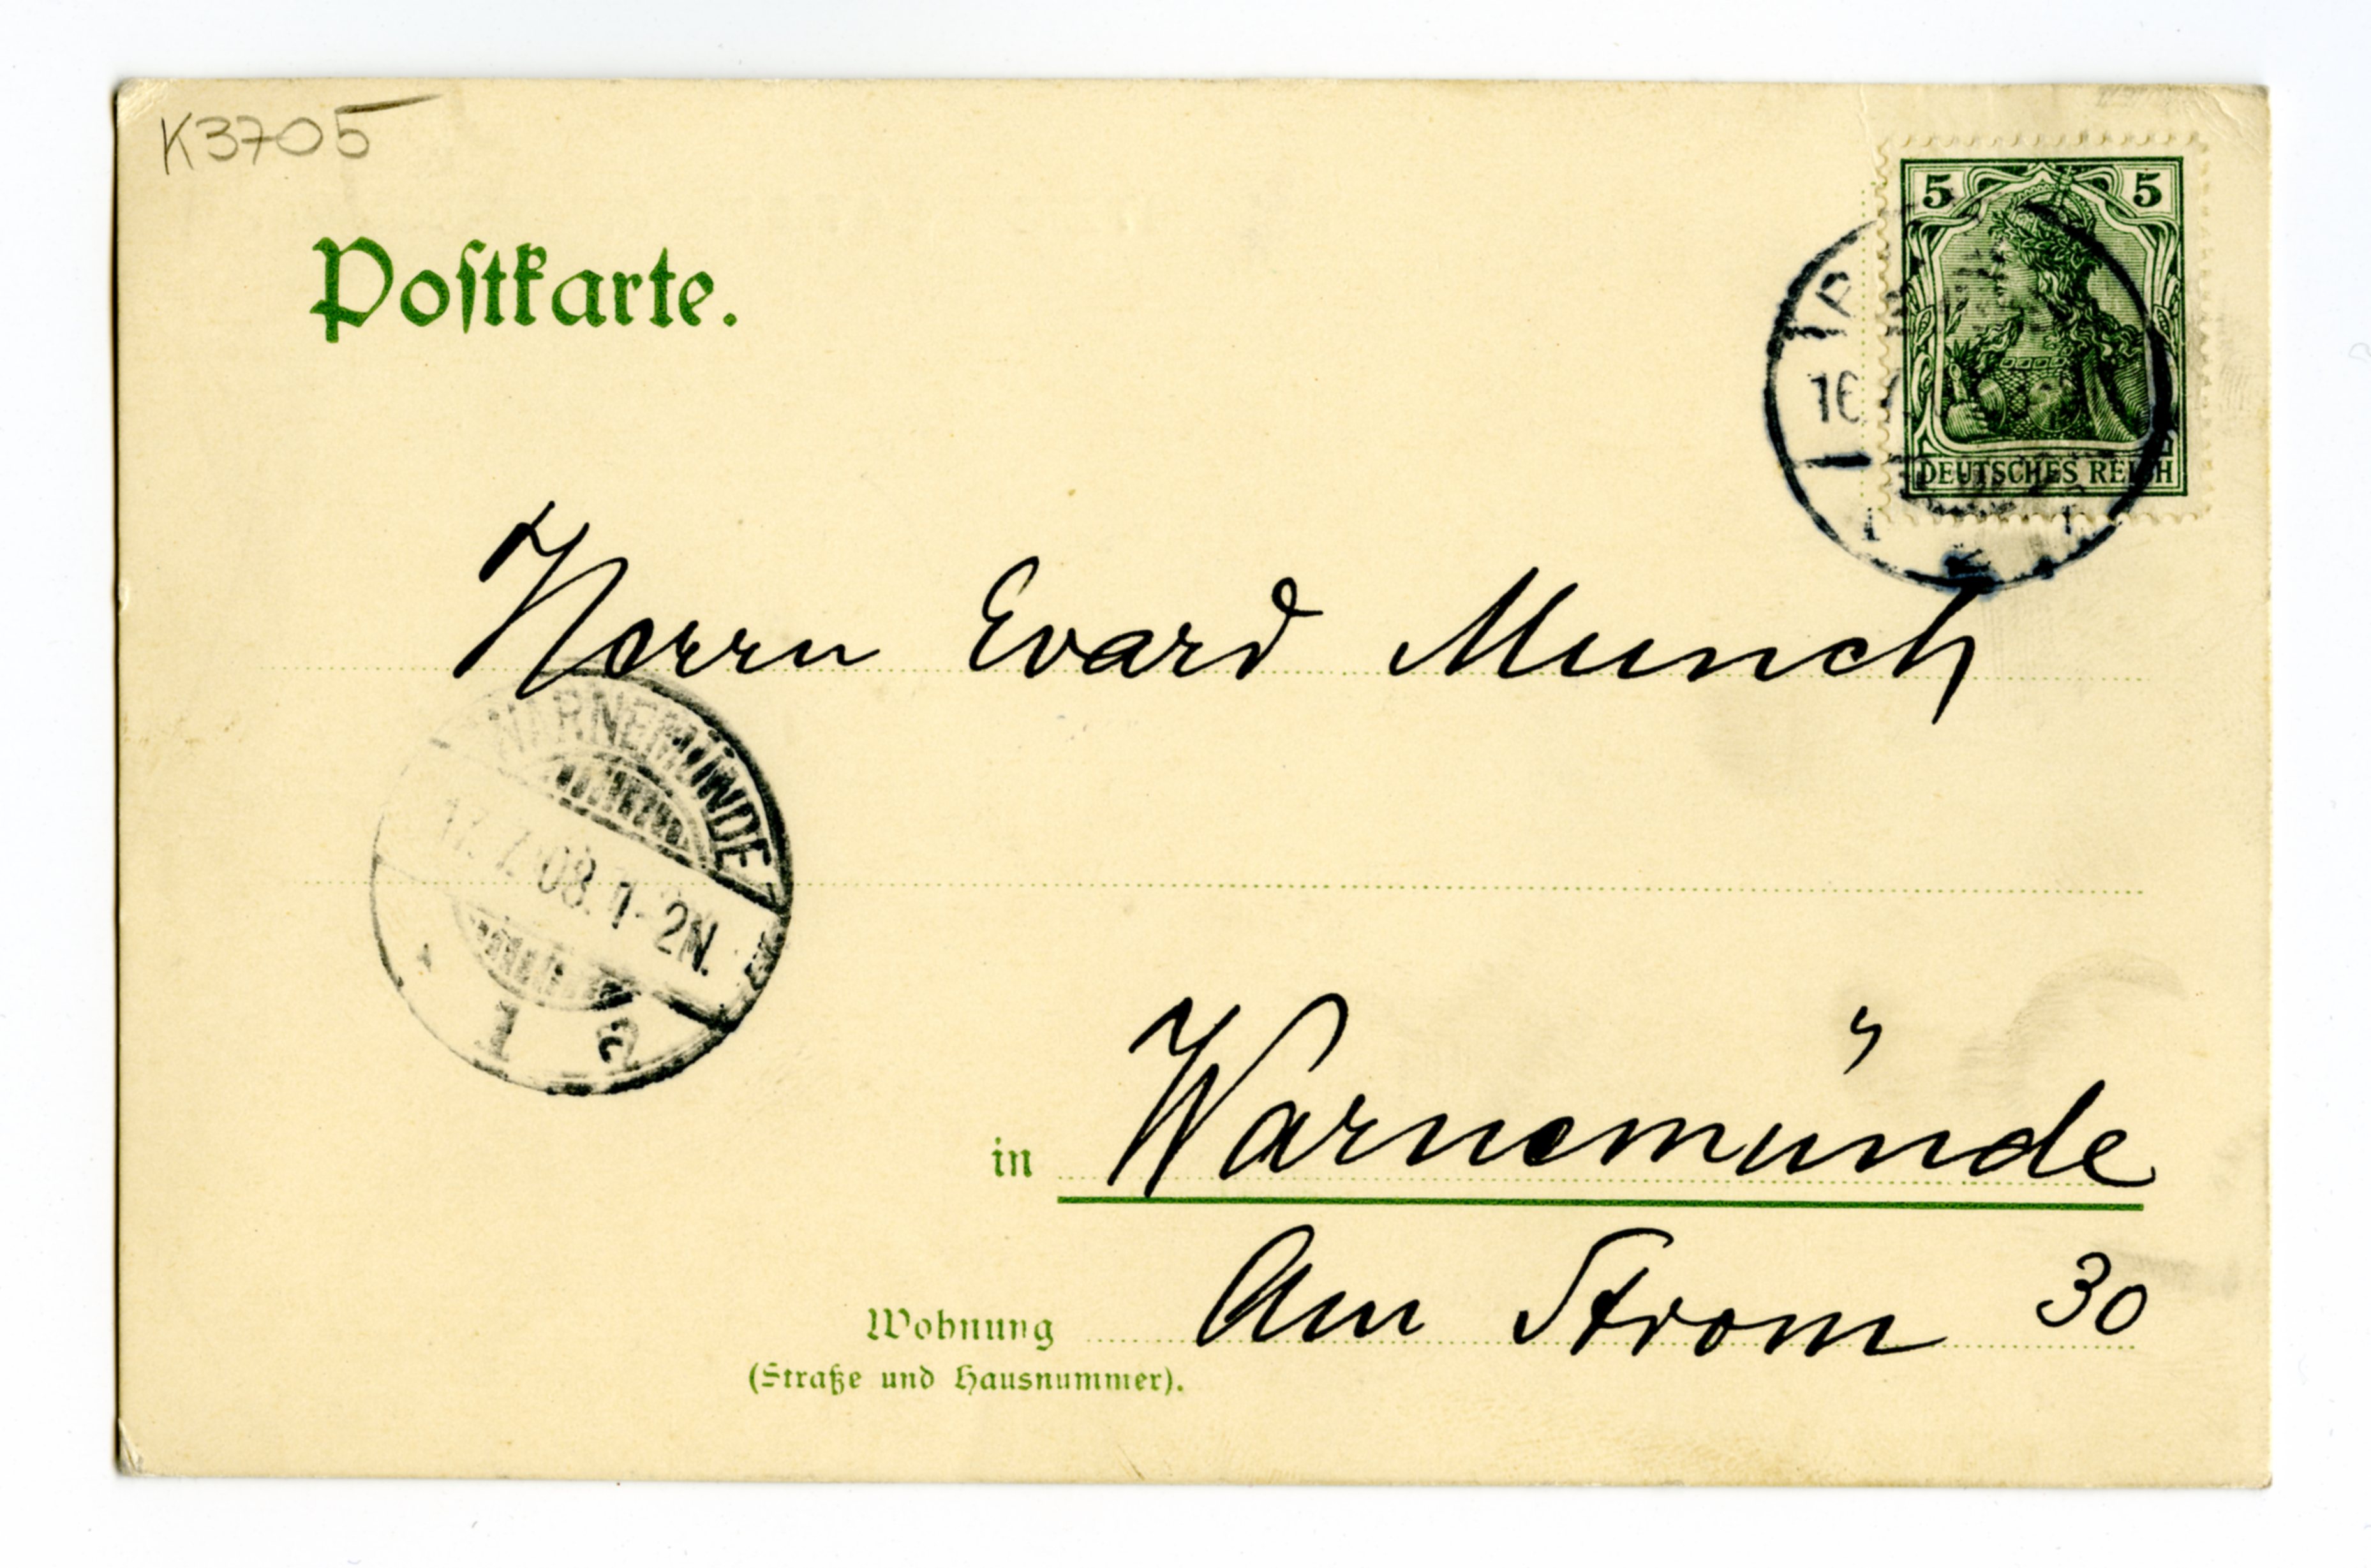 K3705
5 5
Postkarte.
DEUTSCHES REICH
Herrn Evard Munch
WARNEMÜNDE
17.7.08.1-2N.
1 a
in Warnemünde
Am Strom 30
Wohnung
(Straße und Hausnummer).